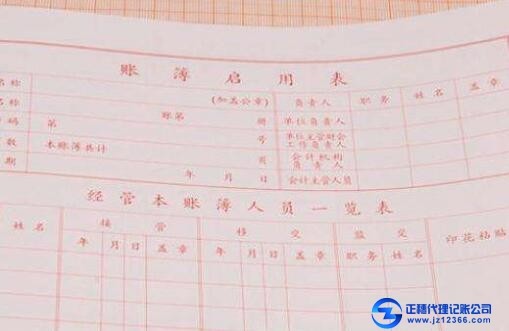 账簿启用表
名称 负责人 职务 姓名 盖章
名称 (加盖公章)
码 第 账第 册 单位负责人
数 本账簿共计 号 单位主管财会工作负责人
期 页 会计机构负责人
年 月 日 会计主管人员
经管本账簿人员一览表
姓名 接管 移交 监交 印花粘贴
年 月 日 盖章 年 月 日 盖章 职务 姓名
正穗代理记账公司
www.jz12366.com